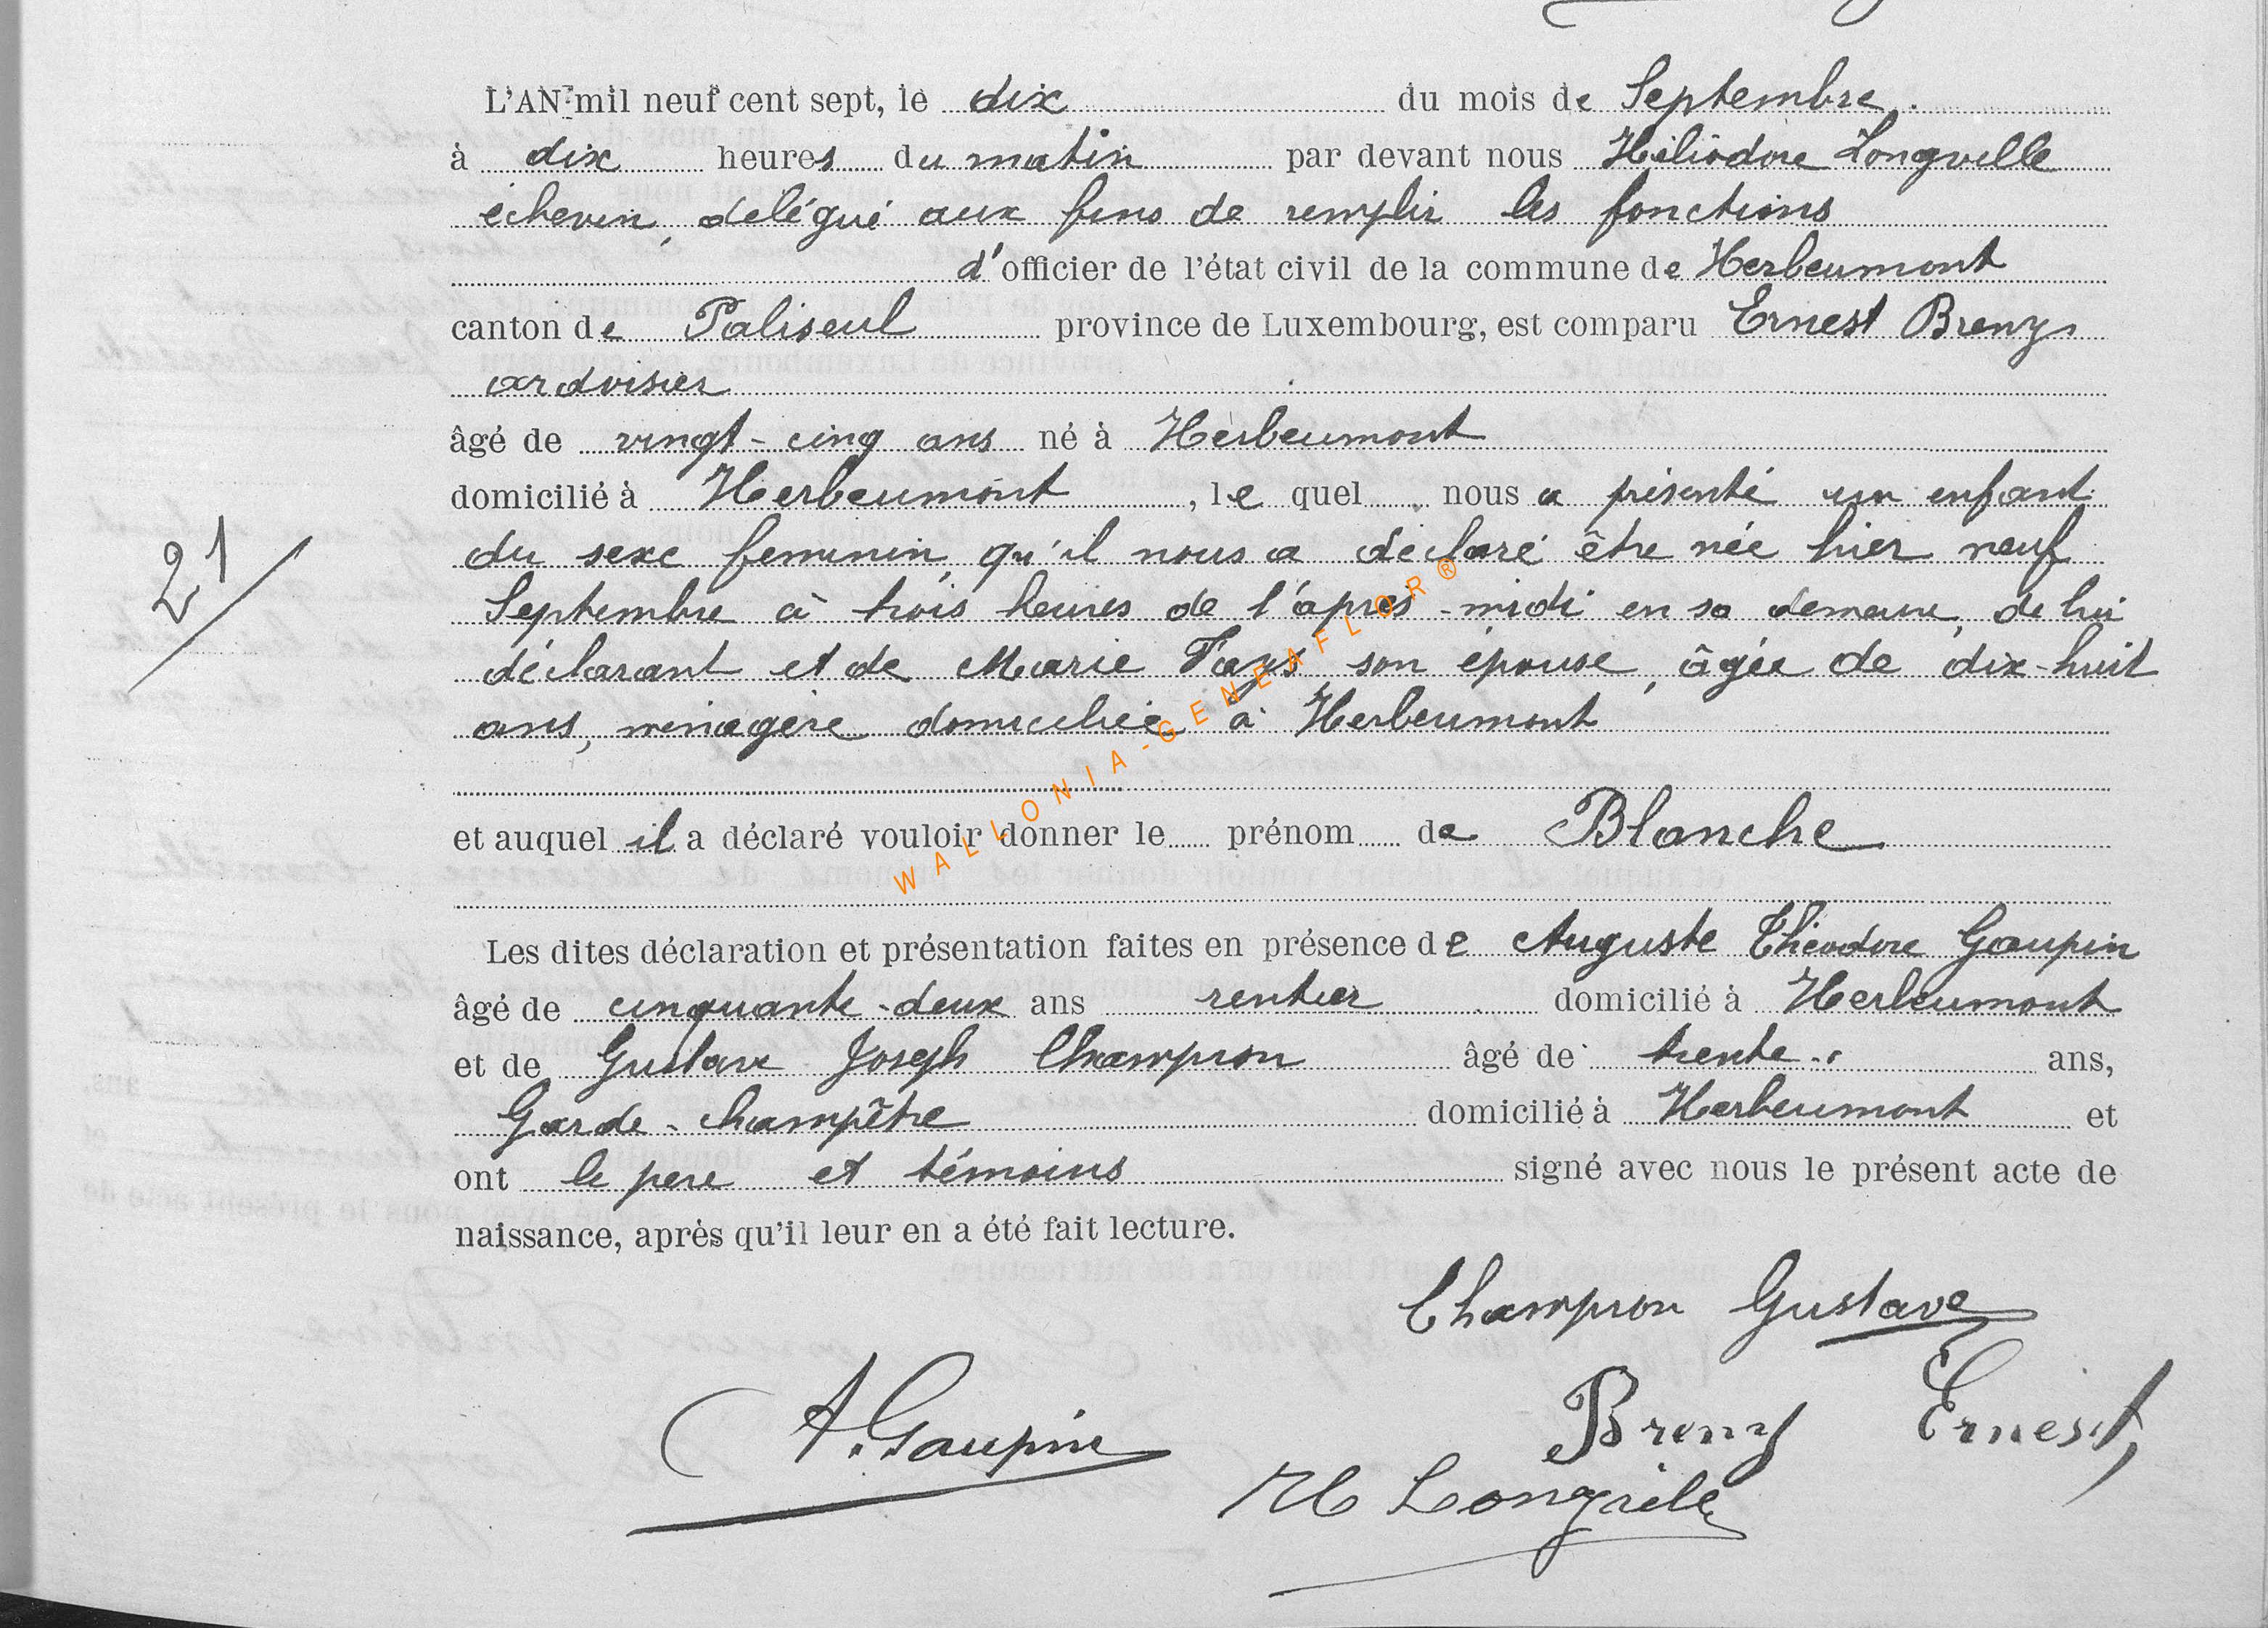 L'AN mil neuf cent sept, le dix du mois de Septembre
à dix heures du matin par devant nous Héliodore Longville
échevin, délégué aux fins de remplir les fonctions
d'officier de l'état civil de la commune de Herbeumont
canton de Paliseul province de Luxembourg, est comparu Ernest Breny
ardoisier
âgé de vingt-cinq ans né à Herbeumont
domicilié à Herbeumont, lequel nous a présenté un enfant
21
du sexe feminin, qu'il nous a déclaré être née hier neuf
Septembre à trois heures de l'après-midi en sa demeure, de lui
déclarant et de Marie Fays son épouse, âgée de dix-huit
ans, ménagère domiciliée à Herbeumont
et auquel il a déclaré vouloir donner le prénom de Blanche
WALLONIA-GENEAFLOR®
Les dites déclaration et présentation faites en présence de Auguste Théodore Gaupin
âgé de cinquante-deux ans rentier domicilié à Herbeumont
et de Gustave Joseph Champion âgé de trente ans,
Garde-champêtre domicilié à Herbeumont et
ont le pere et témoins signé avec nous le présent acte de
naissance, après qu'il leur en a été fait lecture.
Champion Gustave
A. Gaupin Breny Ernest
H Longville